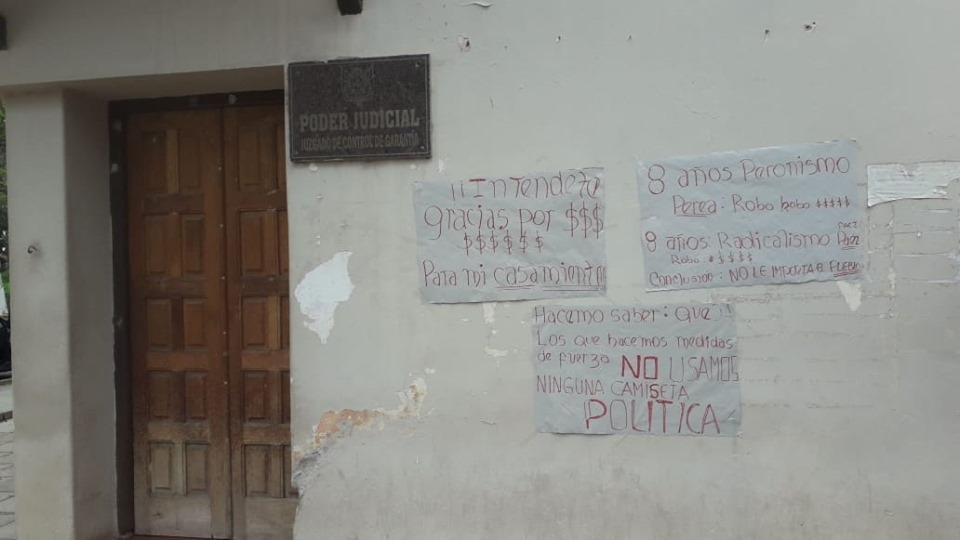 PODER JUDICIAL
JUZGADO DE CONTROL DE GARANTÍA
¡¡Intendeta
gracias por $$$
$$$$$$
Para mi casamiento
8 años Peronismo
Perea: Robo Robo $$$$$
8 años: Radicalismo Paz
Robo $$$$$
Conclusion: NO LE IMPORTA EL
Hacemo saber: que !!
Los que hacemos medidas
de fuerza NO USAMOS
NINGUNA CAMISETA
POLITICA